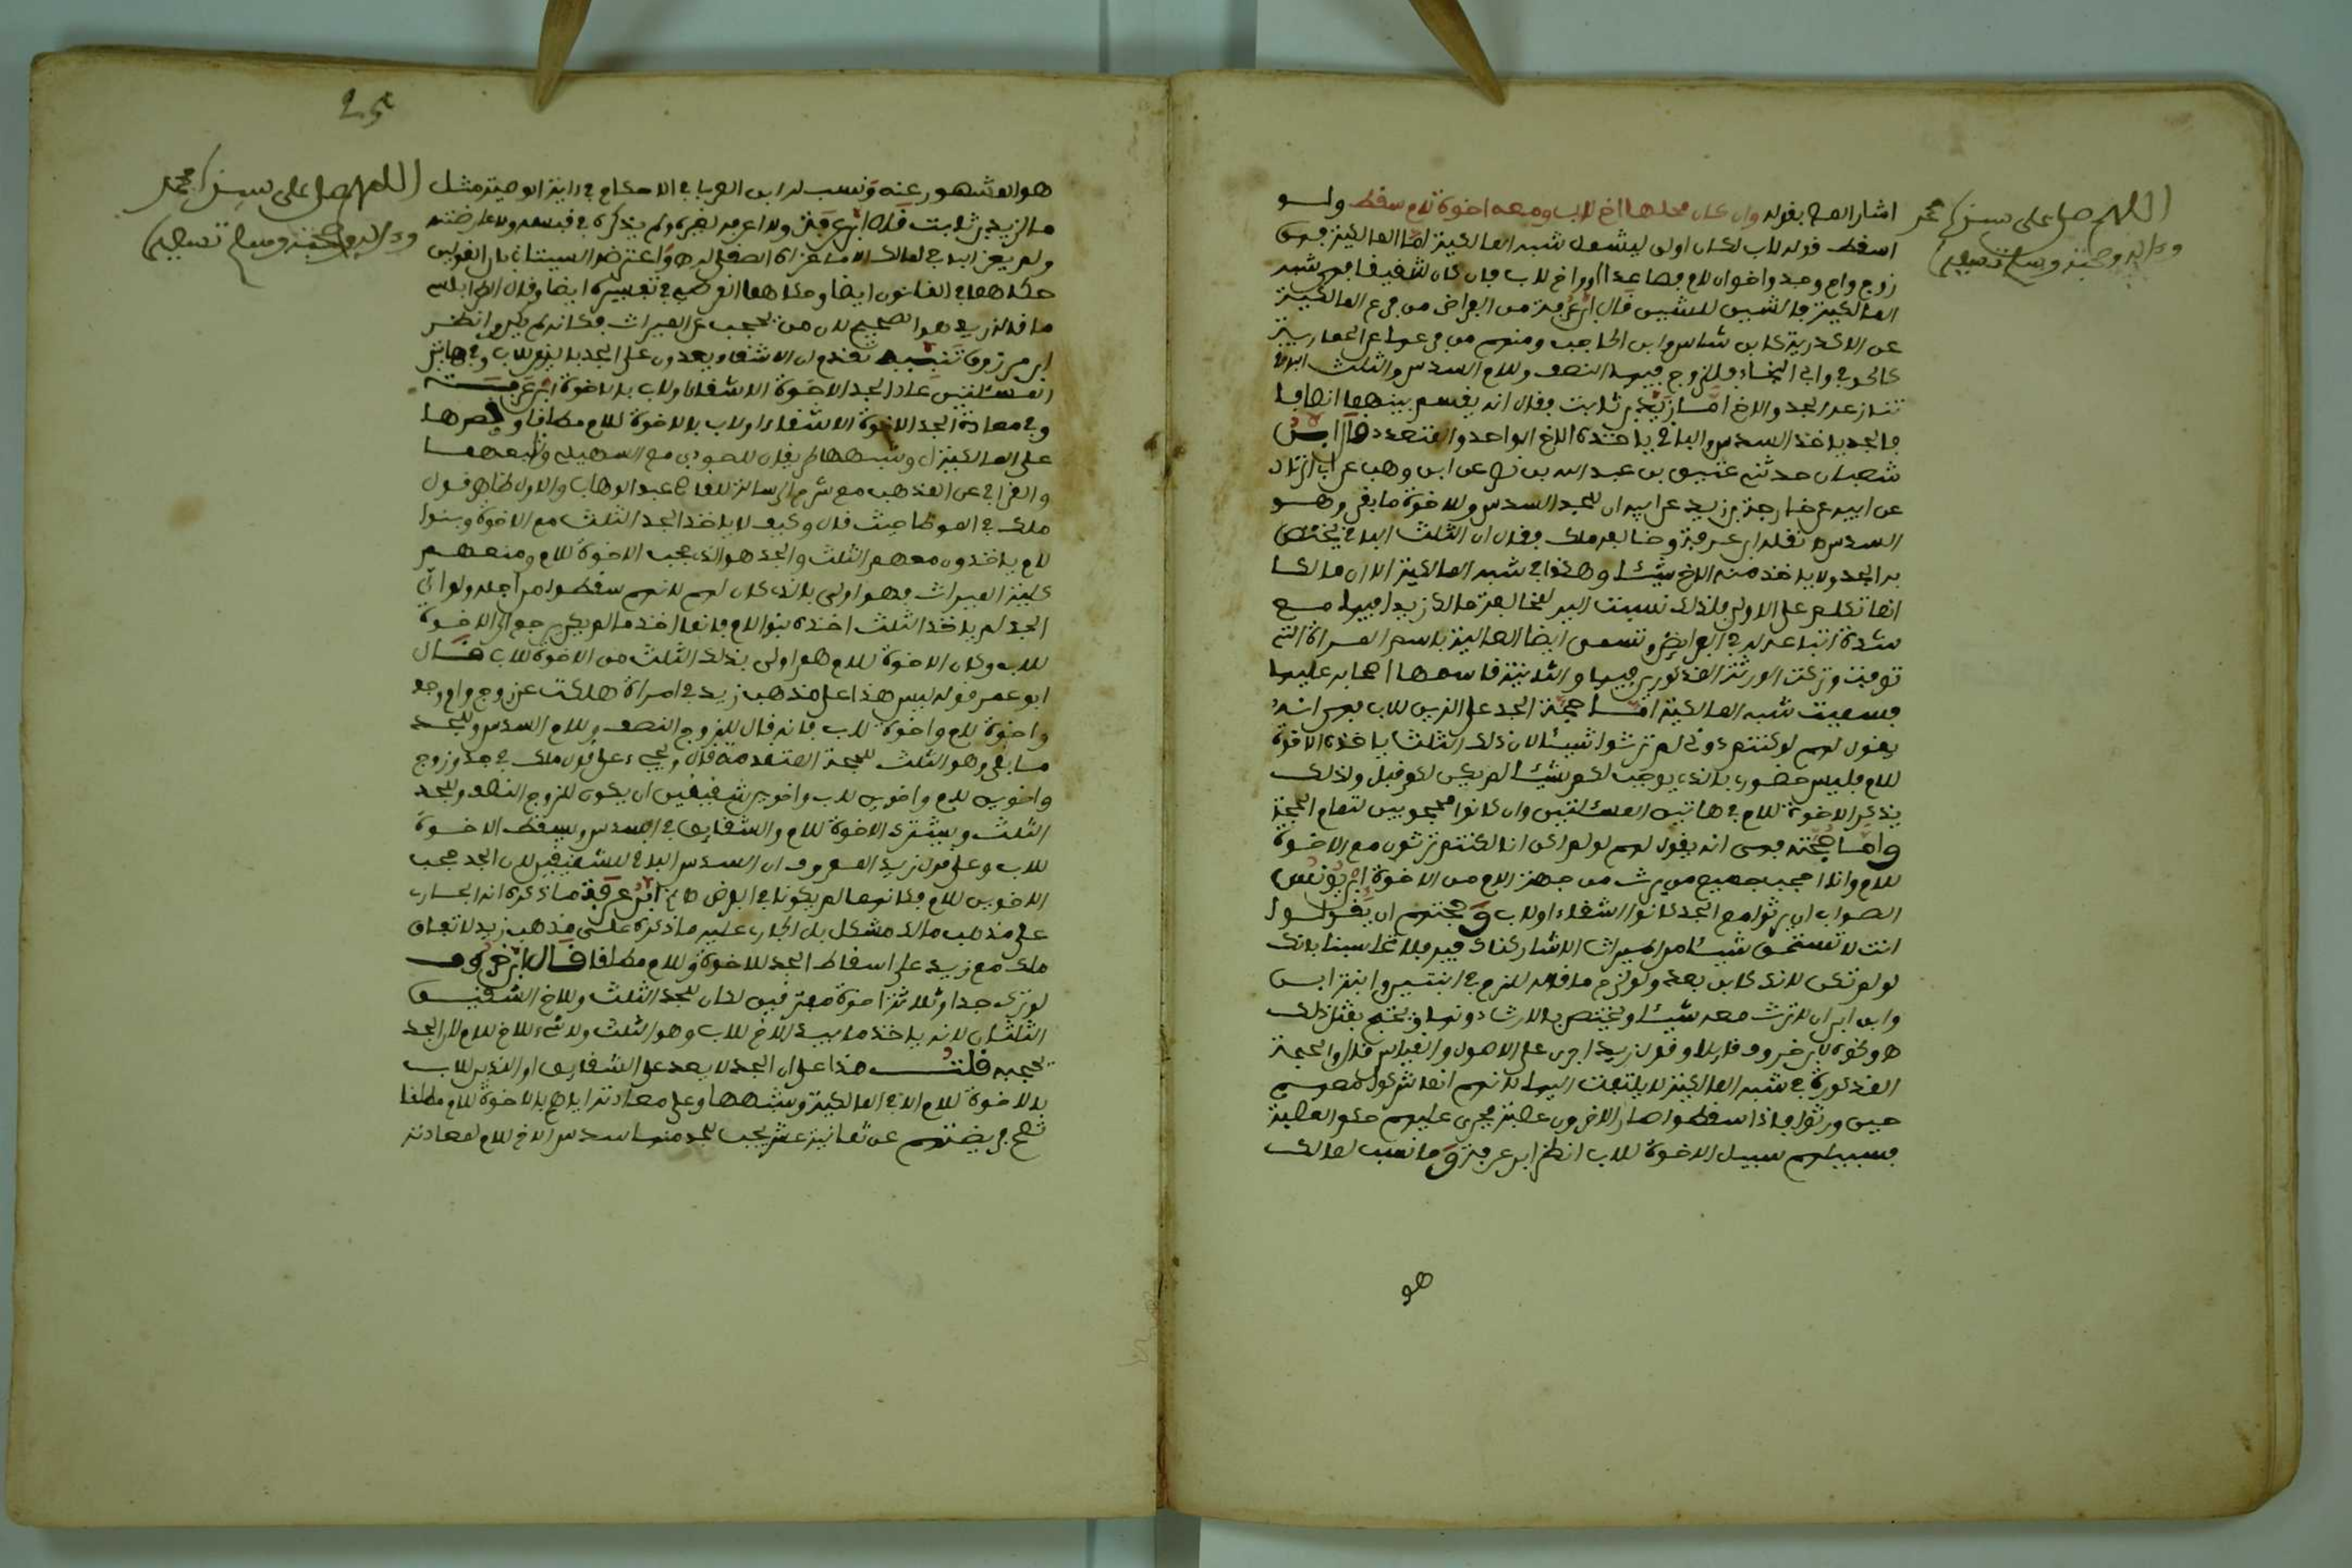 اللهم صل على سيدنا محمد
وءاله وصحبه وسلم تسليما
اشار المص بقوله وان كان محلها اخ لاب ومعه اخوة لام سقط ولو
اسقط قوله لاب لكان اولى ليشمل شبه المالكية اما المالكية فهي
زوج وام وجد واخوان لام فصاعدا واخ لاب فان كان شقيقا فهي شبه
المالكية قال ابن عرفة من الفراض من فرع المالكية
عن الاكدرية كابن شاس وابن الحاجب ومنهم من فرعها عن الحمارية
كالحوفي وابي النجاء وللزوج فيها النصف وللام السدس والثلث الباقي
تنازعه الجد والاخ اما زيد بن ثابت فقال انه يقسم بينهما انصافا
فالجد ياخذ السدس والباقي ياخذه الاخ الواحد والمتعدد قال ابن
شعبان حدثني عتيق بن عبد الله بن عن ابن وهب عن ابي الزناد
عن ابيه عن خارجة بن زيد عن ابيه ان للجد السدس وللاخوة ما بقي وهو
السدس نقله ابن عرفة وخالفه ملك فقال ان الثلث الباقي يختص
به الجد ولا ياخذ منه الاخ شيئا وهكذا في شبه المالكية الا ان مالكا
انما تكلم على الاولى فلذلك نسبت اليه لمخالفة مالك زيدا فيها مع
شدة اتباعه له في الفرايض وتسمى ايضا العالية باسم المراة التي
توفيت وتركت الورثة المذكورين فيها والثانية قاسها اصحابه عليها
فسميت شبه المالكية اما حجة الجد على الذين للاب فهي انه
يقول لهم لو كنتم دوني لم ترثوا شيئا لان ذلك الثلث ياخذه الاخوة
للام فليس حضوري بالذي يوجب لكم شيئا لم يكن لكم قبل ولذلك
يذكر الاخوة للام في هاتين المسئلتين وان كانوا محجوبين لتمام الحجة
واما حجته فهي انه يقول لهم لو لم اكن انا لكنتم ترثون مع الاخوة
للام وانا احجب جميع من يرث من جهة الام من الاخوة ابن يونس
الصواب ان يرثوا مع الجد كانوا اشقاء او لاب وحجتهم ان يقولوا
انت لا تستحق شيئا من الميراث الا شاركناك فيه فلا تحاسبنا بانك
لو لم تكن لانك كاين بعد ولو لزم ما قاله للزم في ابنتين وابنة ابن
وابن ابن ان لا ترث معه شيئا ويختص به الارشادونها ويحتج بمثل ذلك
ونحوه لابن خروف قايلا وقول زيد اجرى على الاصول والقياس قال والحجة
المذكورة في شبه المالكية لا يلتفت اليها لانهم انما شركوا معهم
حين ورثوا فاذا اسقطوا صار الاخرون عصبة يجرى عليهم حكم العصبة
فسبيلهم سبيل الاخوة للاب انظر ابن عرفة وما نسب لمالك
هو
اللهم صل على سيدنا محمد
وءاله وصحبه وسلم تسليما
هو المشهور عنه ونسب له ابن العربي في الاحكام في ءاية الوصية مثل
ما لزيد بن ثابت قال ابن عرفة ولا اعرفه لغيره ولم يذكره في قبسه ولا عارضته
ولم يعزه الباجي لمالك الا ما عزاه الصقلي له واعترضه السيتاني بان القولين
حكاهما في القانون ايضا وحكاهما القرطبي في تفسيره ايضا وقال الطرابلسي
ما قاله زيد هو الصحيح لان من يحجب عن الميراث فكانه لم يكن وانظر
ابن مرزوق تنبيه تقدم ان الاشقاء يعدون على الجد بالذين للاب وفي هاتين
المسئلتين عاد الجد الاخوة الاشقاء او لاب بالاخوة ابن عرفة
وفي معادة الجد الاخوة الاشقاء او لاب بالاخوة للام مطلقا وقصرها
على المالكية وشبهها طريقان للصودي مع السهيلي وتابعهما
والقرافي عن المذهب مع شرح الرسالة للقاضي عبد الوهاب والاول ظاهر قول
ملك في الموطا حيث قال وكيف لا ياخذ الجد الثلث مع الاخوة وبنوا
للام ياخذون معهم الثلث والجد هو الذي حجب الاخوة للام ومنعهم
كلية الميراث فهو اولى بالذي كان لهم لانهم سقطوا من اجله ولو ان
الجد لم ياخذ الثلث اخذه بنوا الام فانما اخذ ما لم يكن يرجع الى الاخوة
للاب وكان الاخوة للام هم اولى بذلك الثلث من الاخوة للاب قال
ابو عمر قوله ليس هذا على مذهب زيد في امراة هلكت عن زوج وام وجد
واخوة للام واخوة للاب فانه قال للزوج النصف وللام السدس وللجد
ما بقي وهو الثلث للحجة المتقدمة قال ويجيء على قول ملك في جد وزوج
واخوين للام واخوين للاب واخوين شقيقين ان يكون للزوج النصف وللجد
الثلث ويشترك الاخوة للام والشقايق في السدس ويسقط الاخوة
للاب وعلى قول زيد المعروف ان السدس الباقي للشقيقين لان الجد حجب
الاخوين للام فكانهما لم يكونا في الفرض ابن عرفة ما ذكره انه الجاري
على مذهب مالك مشكل بل الجاري عليه ما ذكره على مذهب زيد لاتفاق
ملك مع زيد على اسقاط الجد للاخوة للام مطلقا قال ابن خروف
لو ترك جدا وثلاثة اخوة مفترقين لكان للجد الثلث وللاخ الشقيق
الثلثان لانه ياخذ ما بيد الاخ للاب وهو الثلث ولا شيء للاخ للام لان الجد
يحجبه قلت هذا على ان الجد لا يعد على الشقايق او الذين للاب
بالاخوة للام الا في المالكية وشبهها وعلى معادته اياهم بالاخوة للام مطلقا
تصح فريضتهم من ثمانية عشر يجب للجد منها سدس الاخ للام لمعادته